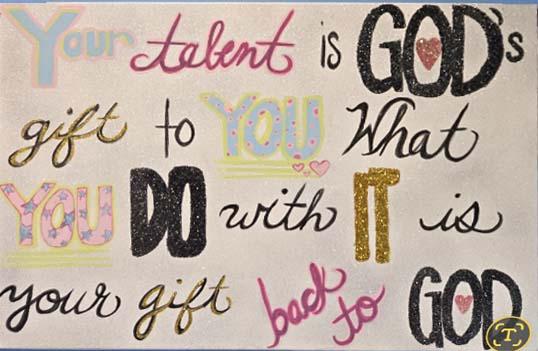 Your talent is GOD's
gift to YOU What
YOU DO with IT is
your gift back to GOD
T